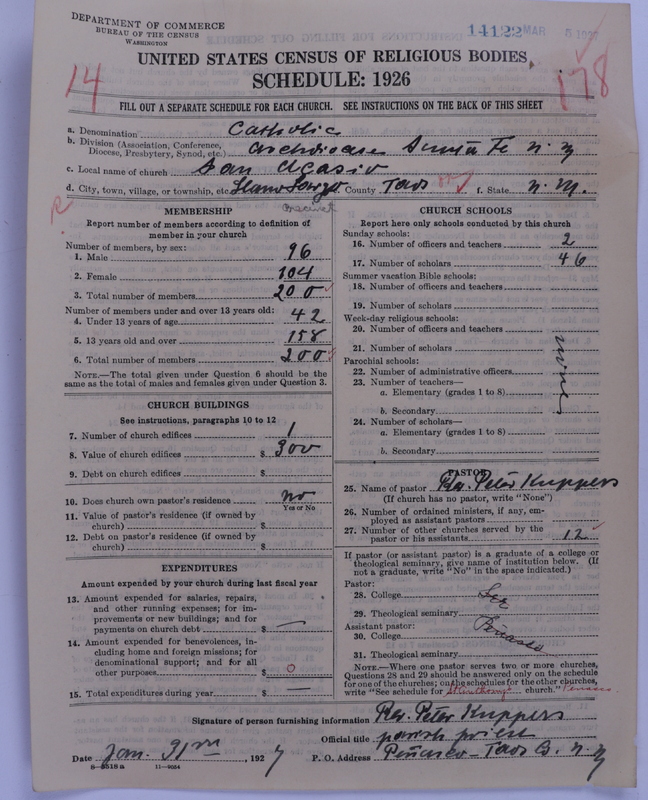 DEPARTMENT OF COMMERCE
BUREAU OF THE CENSUS
WASHINGTON
14122 MAR 5 192
UNITED STATES CENSUS OF RELIGIOUS BODIES
SCHEDULE: 1926
14
178
FILL OUT A SEPARATE SCHEDULE FOR EACH CHURCH. SEE INSTRUCTIONS ON THE BACK OF THIS SHEET
a. Denomination Catholic
b. Division (Association, Conference, Diocese, Presbytery, Synod, etc.) Archdiocese Santa Fe N. M
c. Local name of church San Acasio
d. City, town, village, or township, etc. Llano Largo County Taos f. State N. M.
Precinct
R
MEMBERSHIP
Report number of members according to definition of member in your church
Number of members, by sex:
1. Male 96
2. Female 104
3. Total number of members 200
Number of members under and over 13 years old:
4. Under 13 years of age 42
5. 13 years old and over 158
6. Total number of members 200
NOTE.—The total given under Question 6 should be the same as the total of males and females given under Question 3.
CHURCH BUILDINGS
See instructions, paragraphs 10 to 12
7. Number of church edifices 1
8. Value of church edifices $ 300
9. Debt on church edifices $
10. Does church own pastor's residence no
Yes or No
11. Value of pastor's residence (if owned by church) $
12. Debt on pastor's residence (if owned by church) $
EXPENDITURES
Amount expended by your church during last fiscal year
13. Amount expended for salaries, repairs, and other running expenses; for improvements or new buildings; and for payments on church debt $ —
14. Amount expended for benevolences, including home and foreign missions; for denominational support; and for all other purposes $ 0
15. Total expenditures during year $ —
CHURCH SCHOOLS
Report here only schools conducted by this church
Sunday schools:
16. Number of officers and teachers 2
17. Number of scholars 46
Summer vacation Bible schools:
18. Number of officers and teachers
19. Number of scholars
Week-day religious schools:
20. Number of officers and teachers
21. Number of scholars
none
Parochial schools:
22. Number of administrative officers
23. Number of teachers—
a. Elementary (grades 1 to 8)
b. Secondary
24. Number of scholars—
a. Elementary (grades 1 to 8)
b. Secondary
PASTOR
25. Name of pastor Rev. Peter Kuppers
(If church has no pastor, write "None")
26. Number of ordained ministers, if any, employed as assistant pastors
27. Number of other churches served by the pastor or his assistants 12
If pastor (or assistant pastor) is a graduate of a college or theological seminary, give name of institution below. (If not a graduate, write "No" in the space indicated.)
Pastor:
28. College See
29. Theological seminary
Assistant pastor: Peñasco
30. College
31. Theological seminary
NOTE.—Where one pastor serves two or more churches, Questions 28 and 29 should be answered only on the schedule for one of the churches; on the schedules for the other churches, write "See schedule for St Anthony church." Penasco
Signature of person furnishing information Rev. Peter Kuppers
Official title parish priest
Date Jan. 31st, 1927 P. O. Address Peñasco - Taos Co. N. M
11—9684